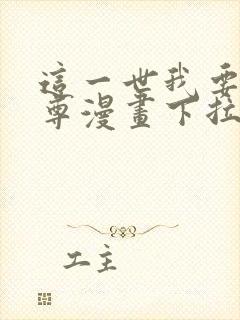 這一世我要
尊漫畫下拉
工主